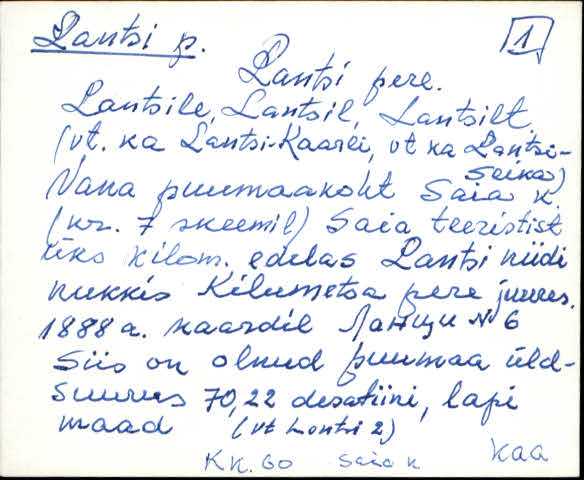 Lantsi p. 1
Lantsi pere.
Lantsile, Lantsil, Lantsilt
(vt. ka Lantsi-Kaarli, vt ka Lantsi-
Seika)
Vana puumaakoht Saia k.
(nr. 7 skeemil) Saia teeristist
üks kilom. edelas Lantsi niidi
nukkis Kilumetsa pere juures.
1888 a. kaardil Ланци № 6
Siis on olnud puumaa üld-
suurus 70,22 desatiini, lapi
maad (vt Lontsi 2)
KK. 60 Saia k Kaa